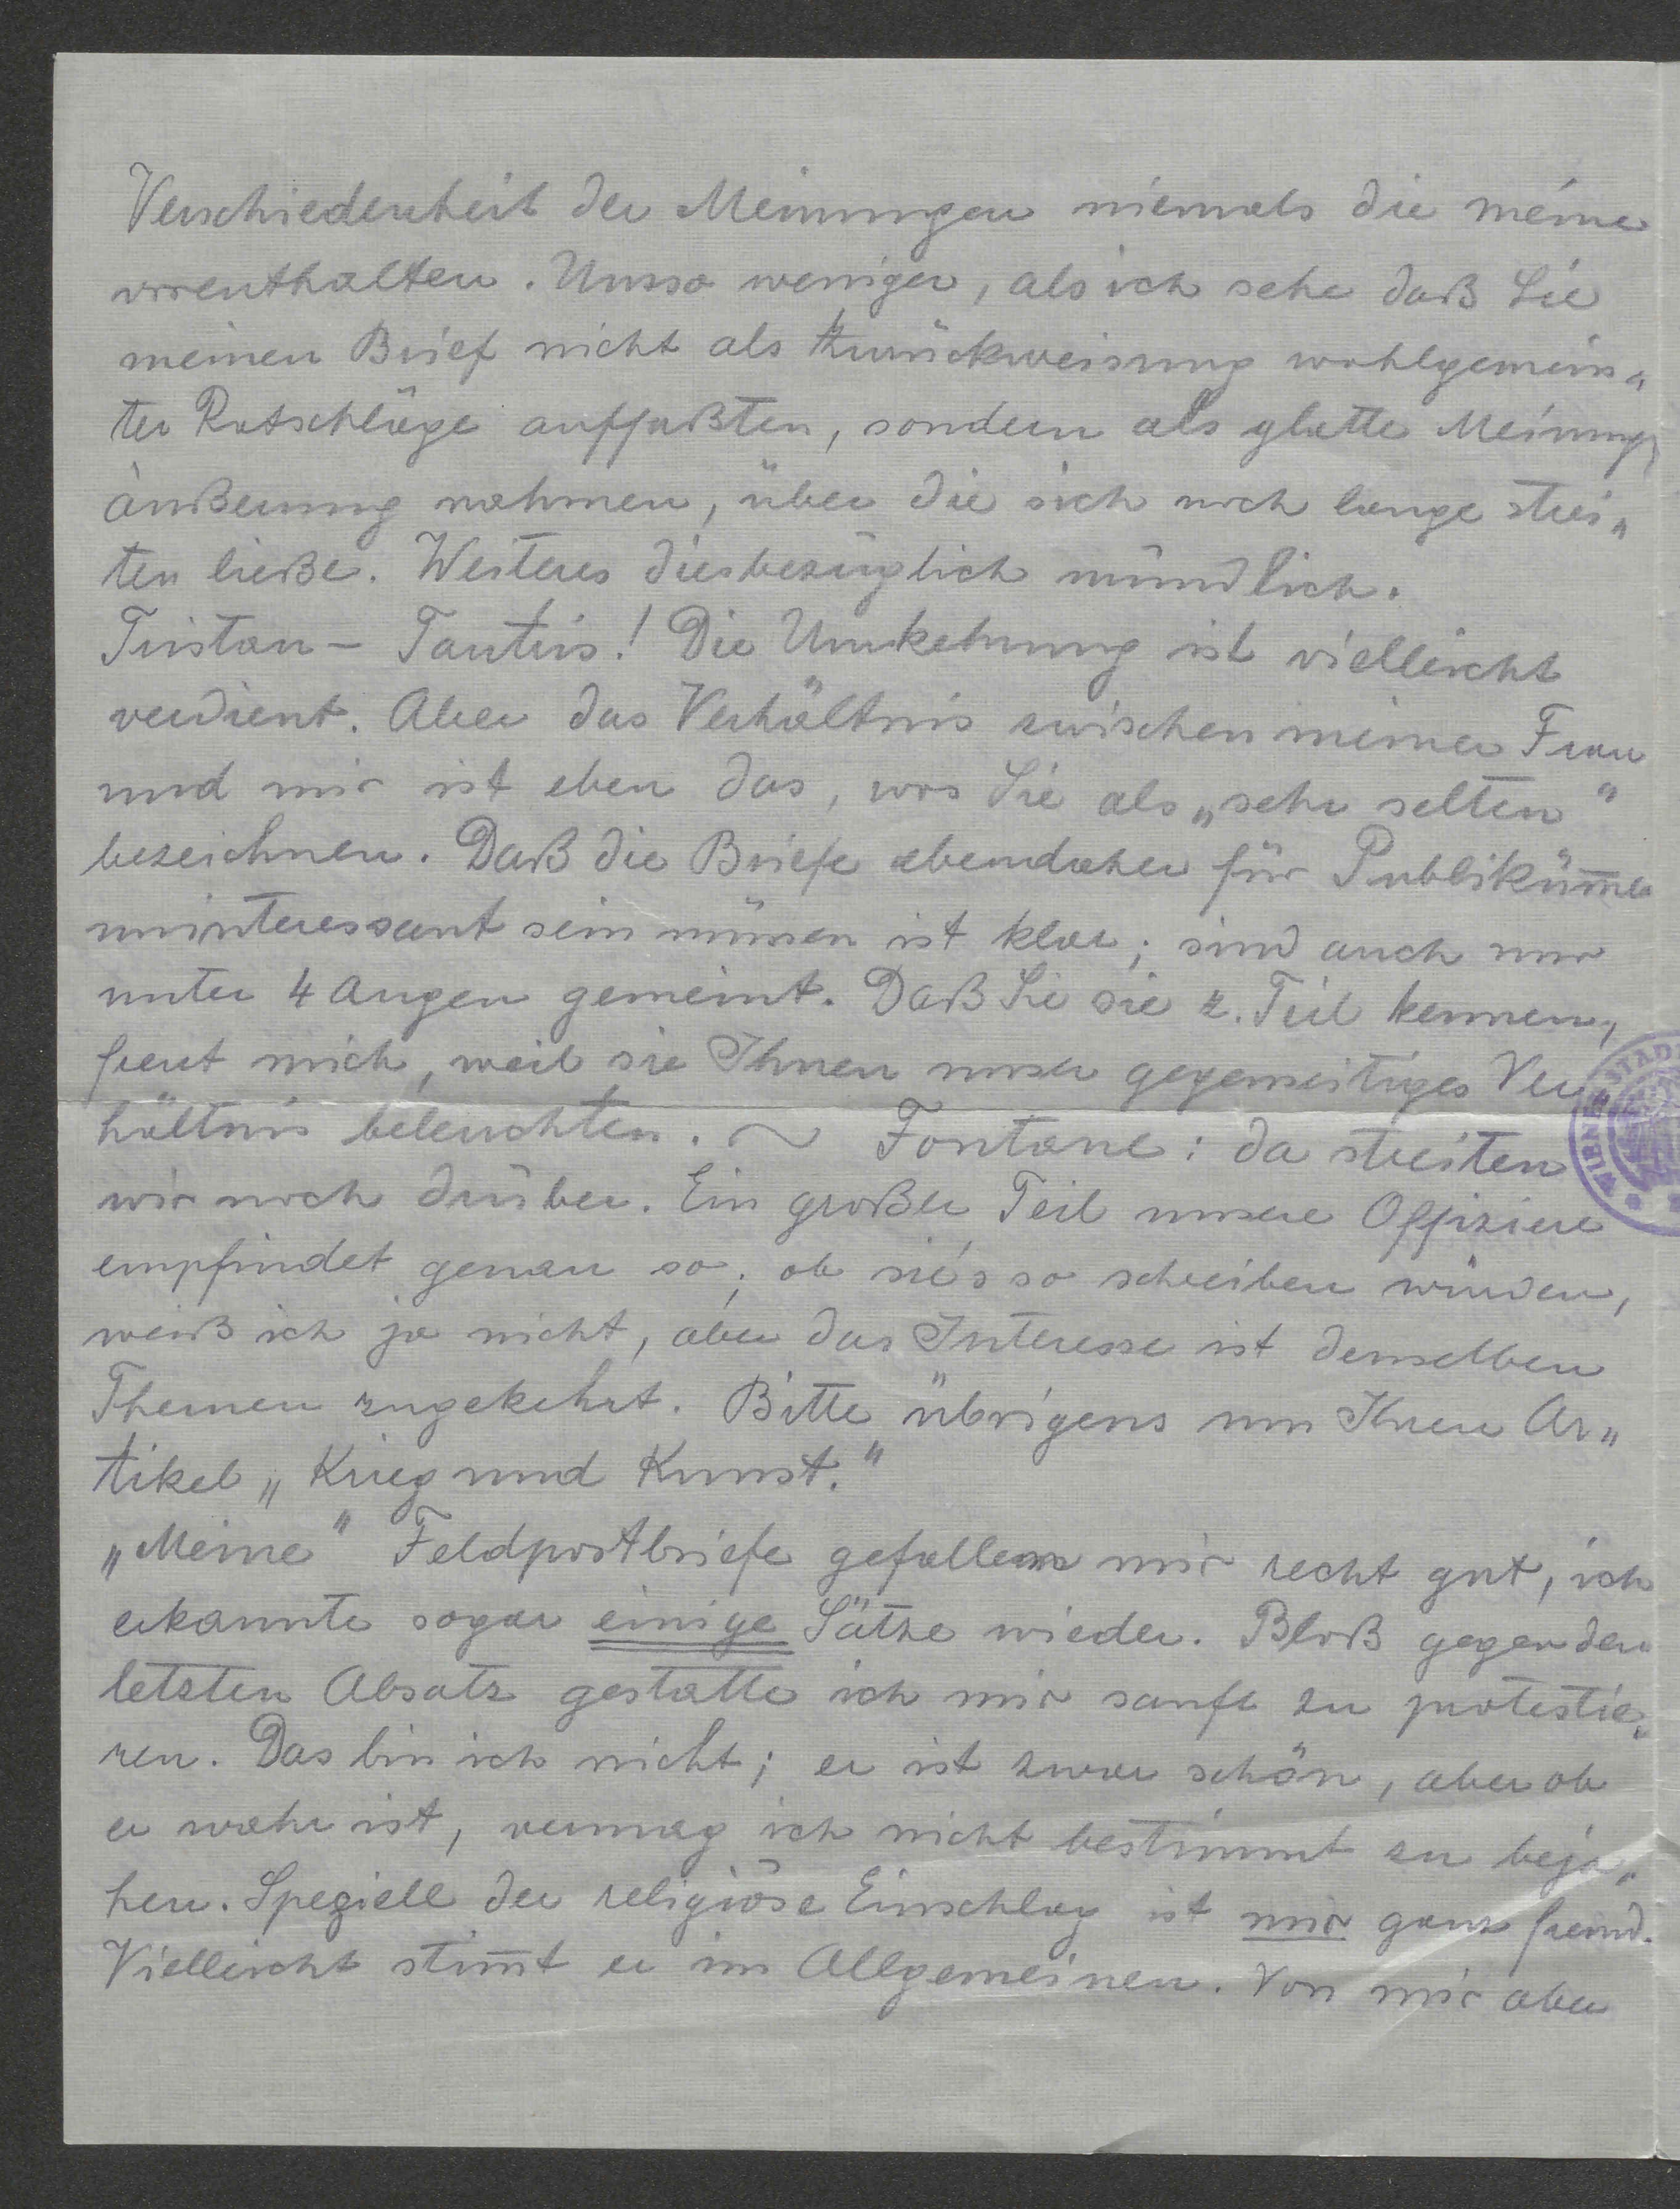 Verschiedenheit der Meinungen niemals die meine
vorenthalten. Umso weniger, als ich sehe daß Sie
meinen Brief nicht als Zurückweisung wohlgemein„
ter Ratschläge auffaßten, sondern als glatte Meinungs
äußerung nahmen, über die sich noch lange strei„
ten ließe. Weiteres diesbezüglich mündlich.
Tristan – Tantris! Die Umkehrung ist vielleicht
verdient. Aber das Verhältnis zwischen meiner Frau
und mir ist eben das, was Sie als „sehr selten“
bezeichnen. Daß die Briefe ebendaher für Publikümer
uninteressant sein müssen ist klar; sind auch nur
unter 4 Augen gemeint. Daß Sie sie z. Teil kennen,
freut mich, weil sie Ihnen unser gegenseitiges Ver
hältnis beleuchten. ~ Fontane: da streiten
wir noch drüber. Ein großer Teil unsere Offiziere
empfindet genau so; ob sie's so schreiben würden,
weiß ich ja nicht, aber das Interesse ist denselben
Themen zugekehrt. Bitte übrigens um Ihren Ar„
tikel „Krieg und Kunst.“
„Meine“ Feldpostbriefe gefallen mir recht gut, ich
erkannte sogar einige Sätze wieder. Bloß gegen den
letzten Absatz gestatte ich mir sanft zu protestie„
ren. Das bin ich nicht; er ist zwar schön, aber ob
er wahr ist, vermag ich nicht bestimmt zu beja„
hen. Speziell der religiöse Einschlag ist mir ganz fremd.
Vielleicht stim̅t er im Allgemeinen. Von mir aber
WIENER STAD